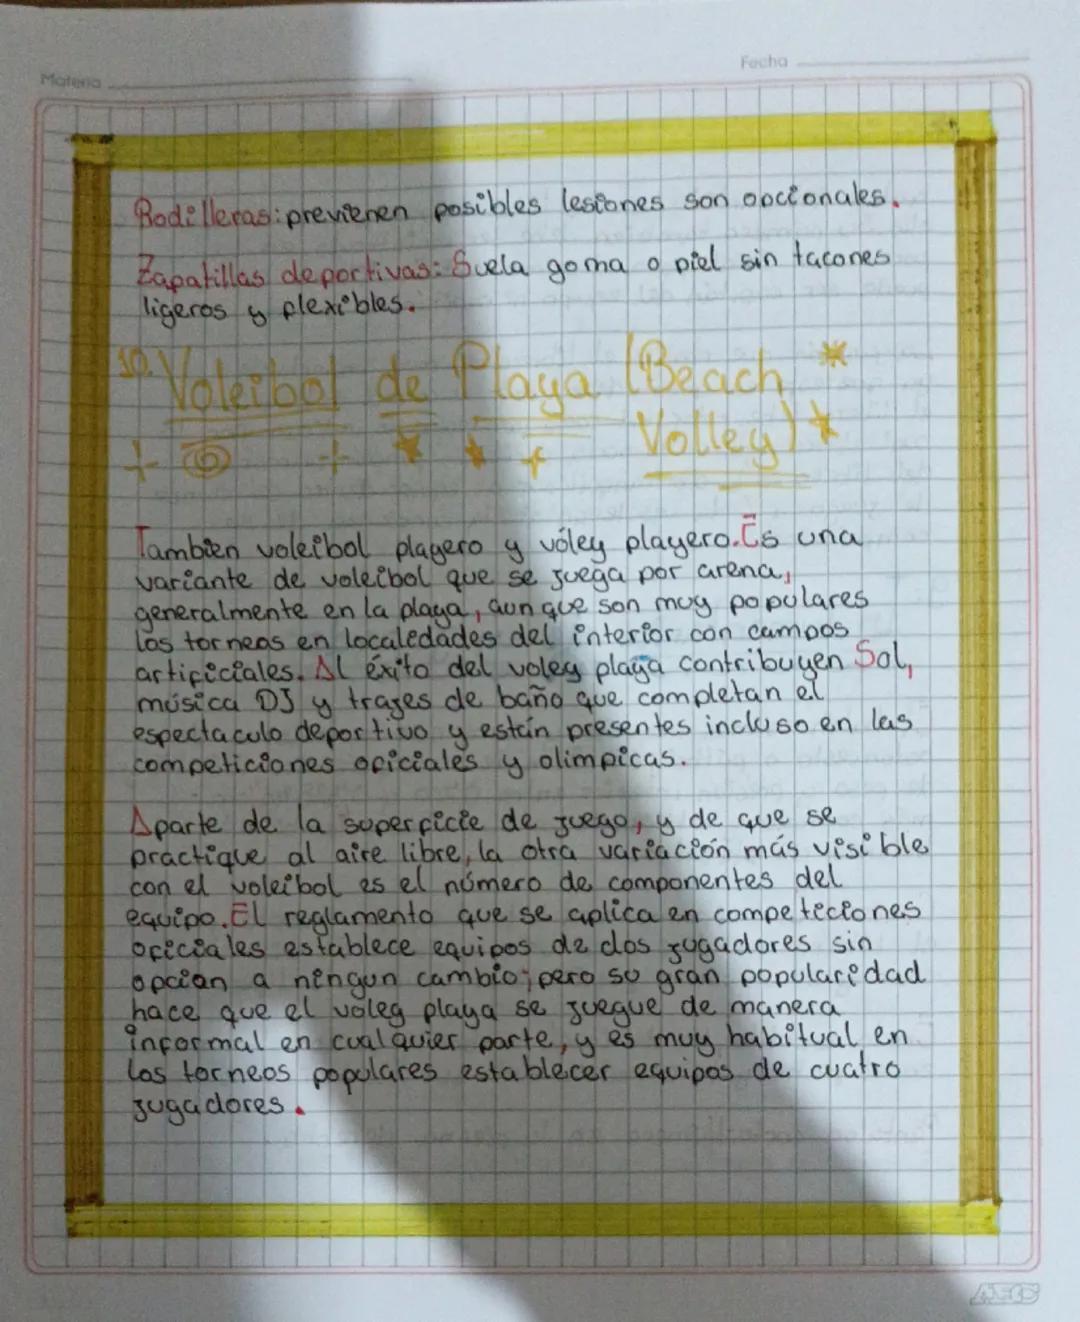 Materia
Fecha
Rodilleras: previenen posibles lesiones son opcionales.
Zapatillas deportivas: Suela goma o piel sin tacones
ligeros y flexibles.
10. Voleibol de Playa (Beach
Volley)
Tambien voleibol playero y vóley playero. Es una
variante de voleibol que se juega por arena,
generalmente en la playa, aun que son muy populares
los torneos en localidades del interior con campos
artificiales. Al éxito del voley playa contribuyen Sol,
música DJ y trajes de baño que completan el
espectaculo deportivo y están presentes incluso en las
competiciones oficiales y olimpicas.
Aparte de la superficie de juego, y de que se
practique al aire libre, la otra variación más visible
con el voleibol es el número de componentes del
equipo. El reglamento que se aplica en competiciones
oficiales establece equipos de dos jugadores sin
opcion a ningun cambio; pero su gran popularidad
hace que el voley playa se juegue de manera
informal en cualquier parte, y es muy habitual en
los torneos populares establecer equipos de cuatro
jugadores.